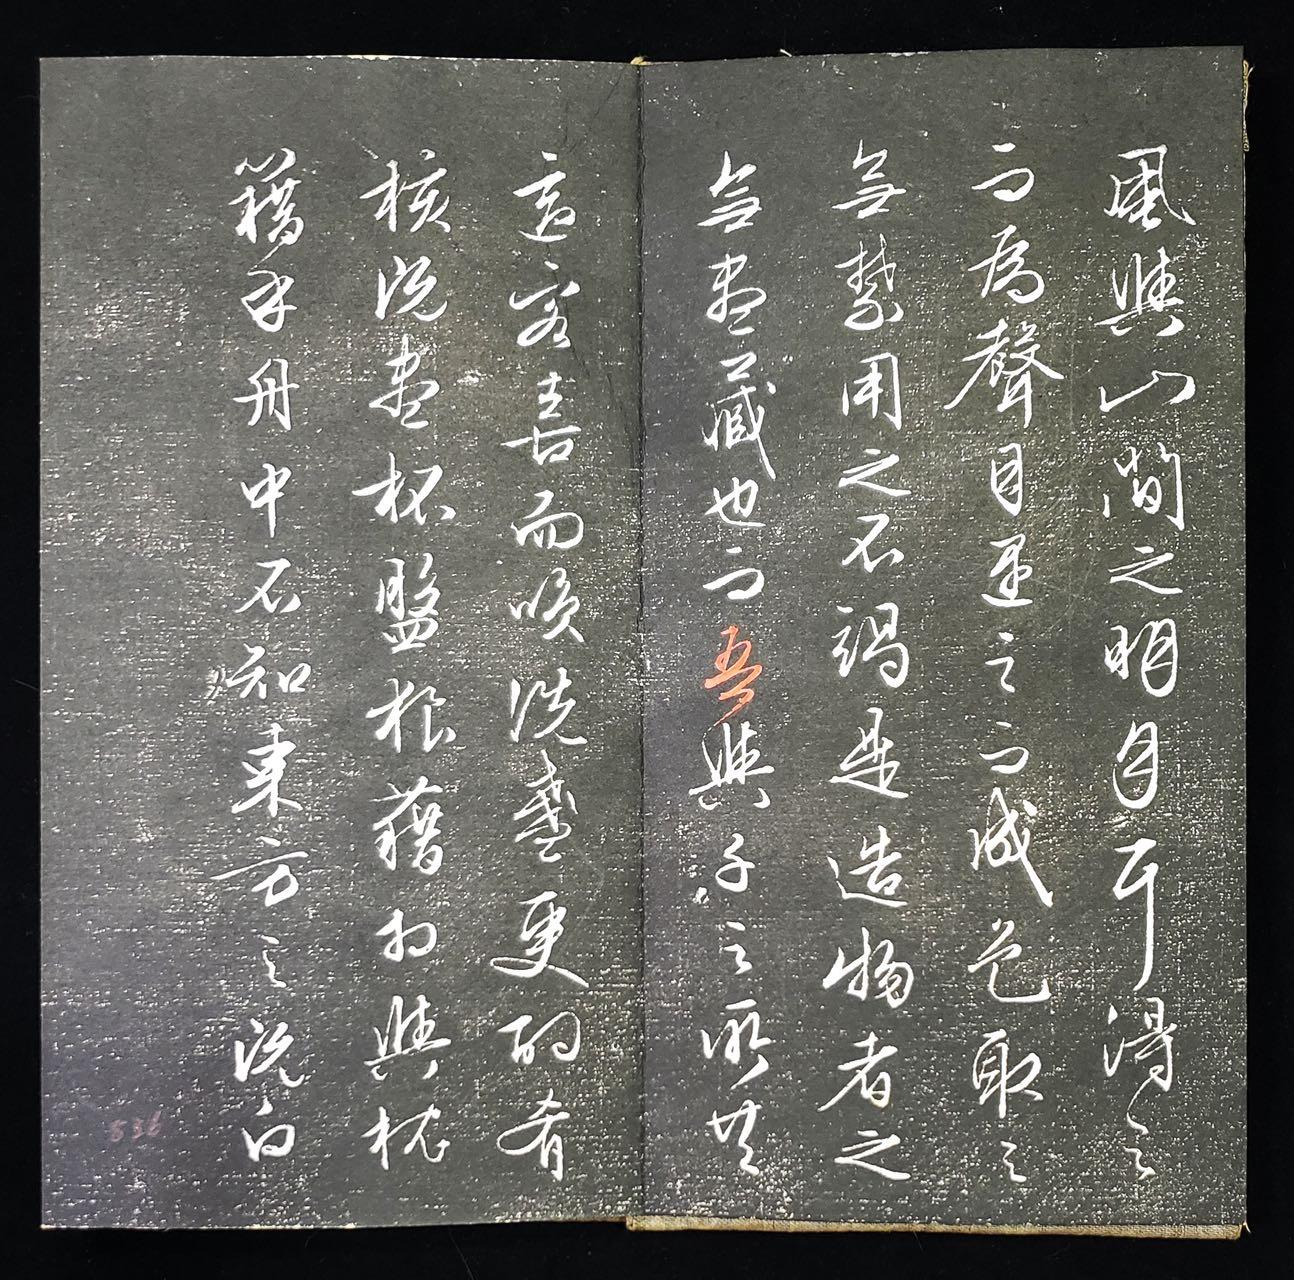 風與山間之明月耳得之
而為聲目遇之而成色取之
無禁用之不竭是造物者之
無盡藏也而吾與子之所共
適客喜而咲洗盞更酌肴
核既盡杯盤狼藉相與枕
籍乎舟中不知東方之既白
836